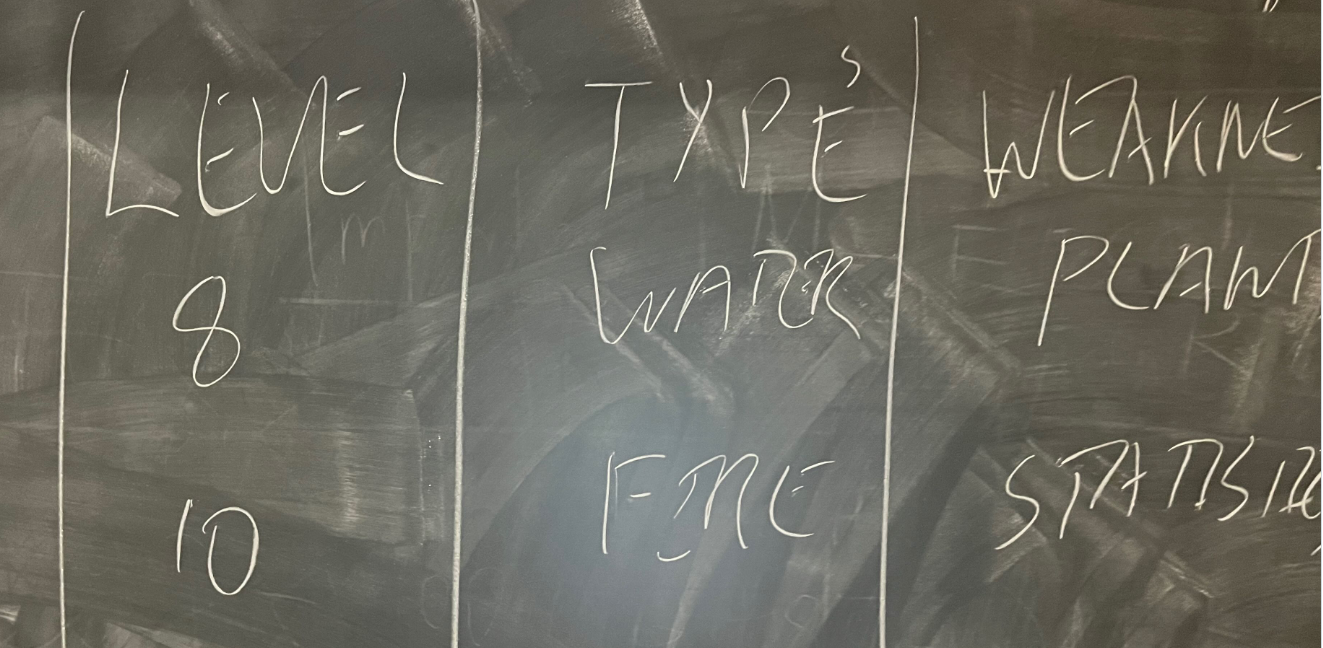 LEVEL TYPES WEAKNE
8 WATER PLANT
10 FIRE STATISTIC